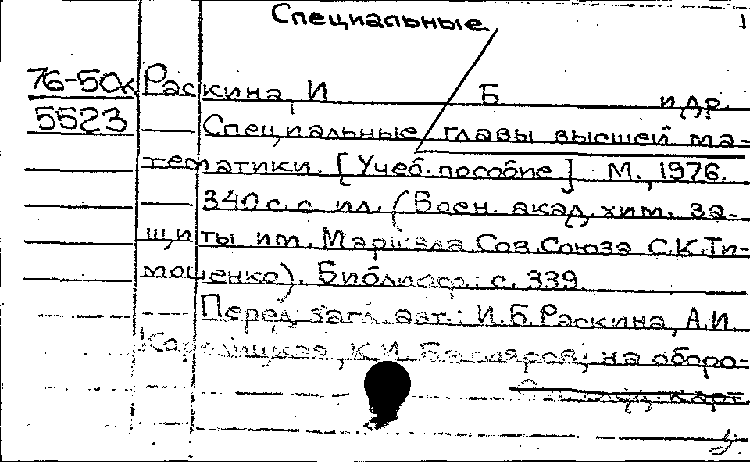 Специальные
76-50к Раскина, И Б и др.
5523 Специальные главы высшей ма-
тематики. [Учеб. пособие] М., 1976.
340 с. с ил. (Воен. акад. хим. за-
щиты им. Маршала Сов. Союза С.К. Ти-
мошенко). Библиогр.: с. 339
Перед загл. авт.: И.Б. Раскина, А.И.
К.И. на оборо-
карт.